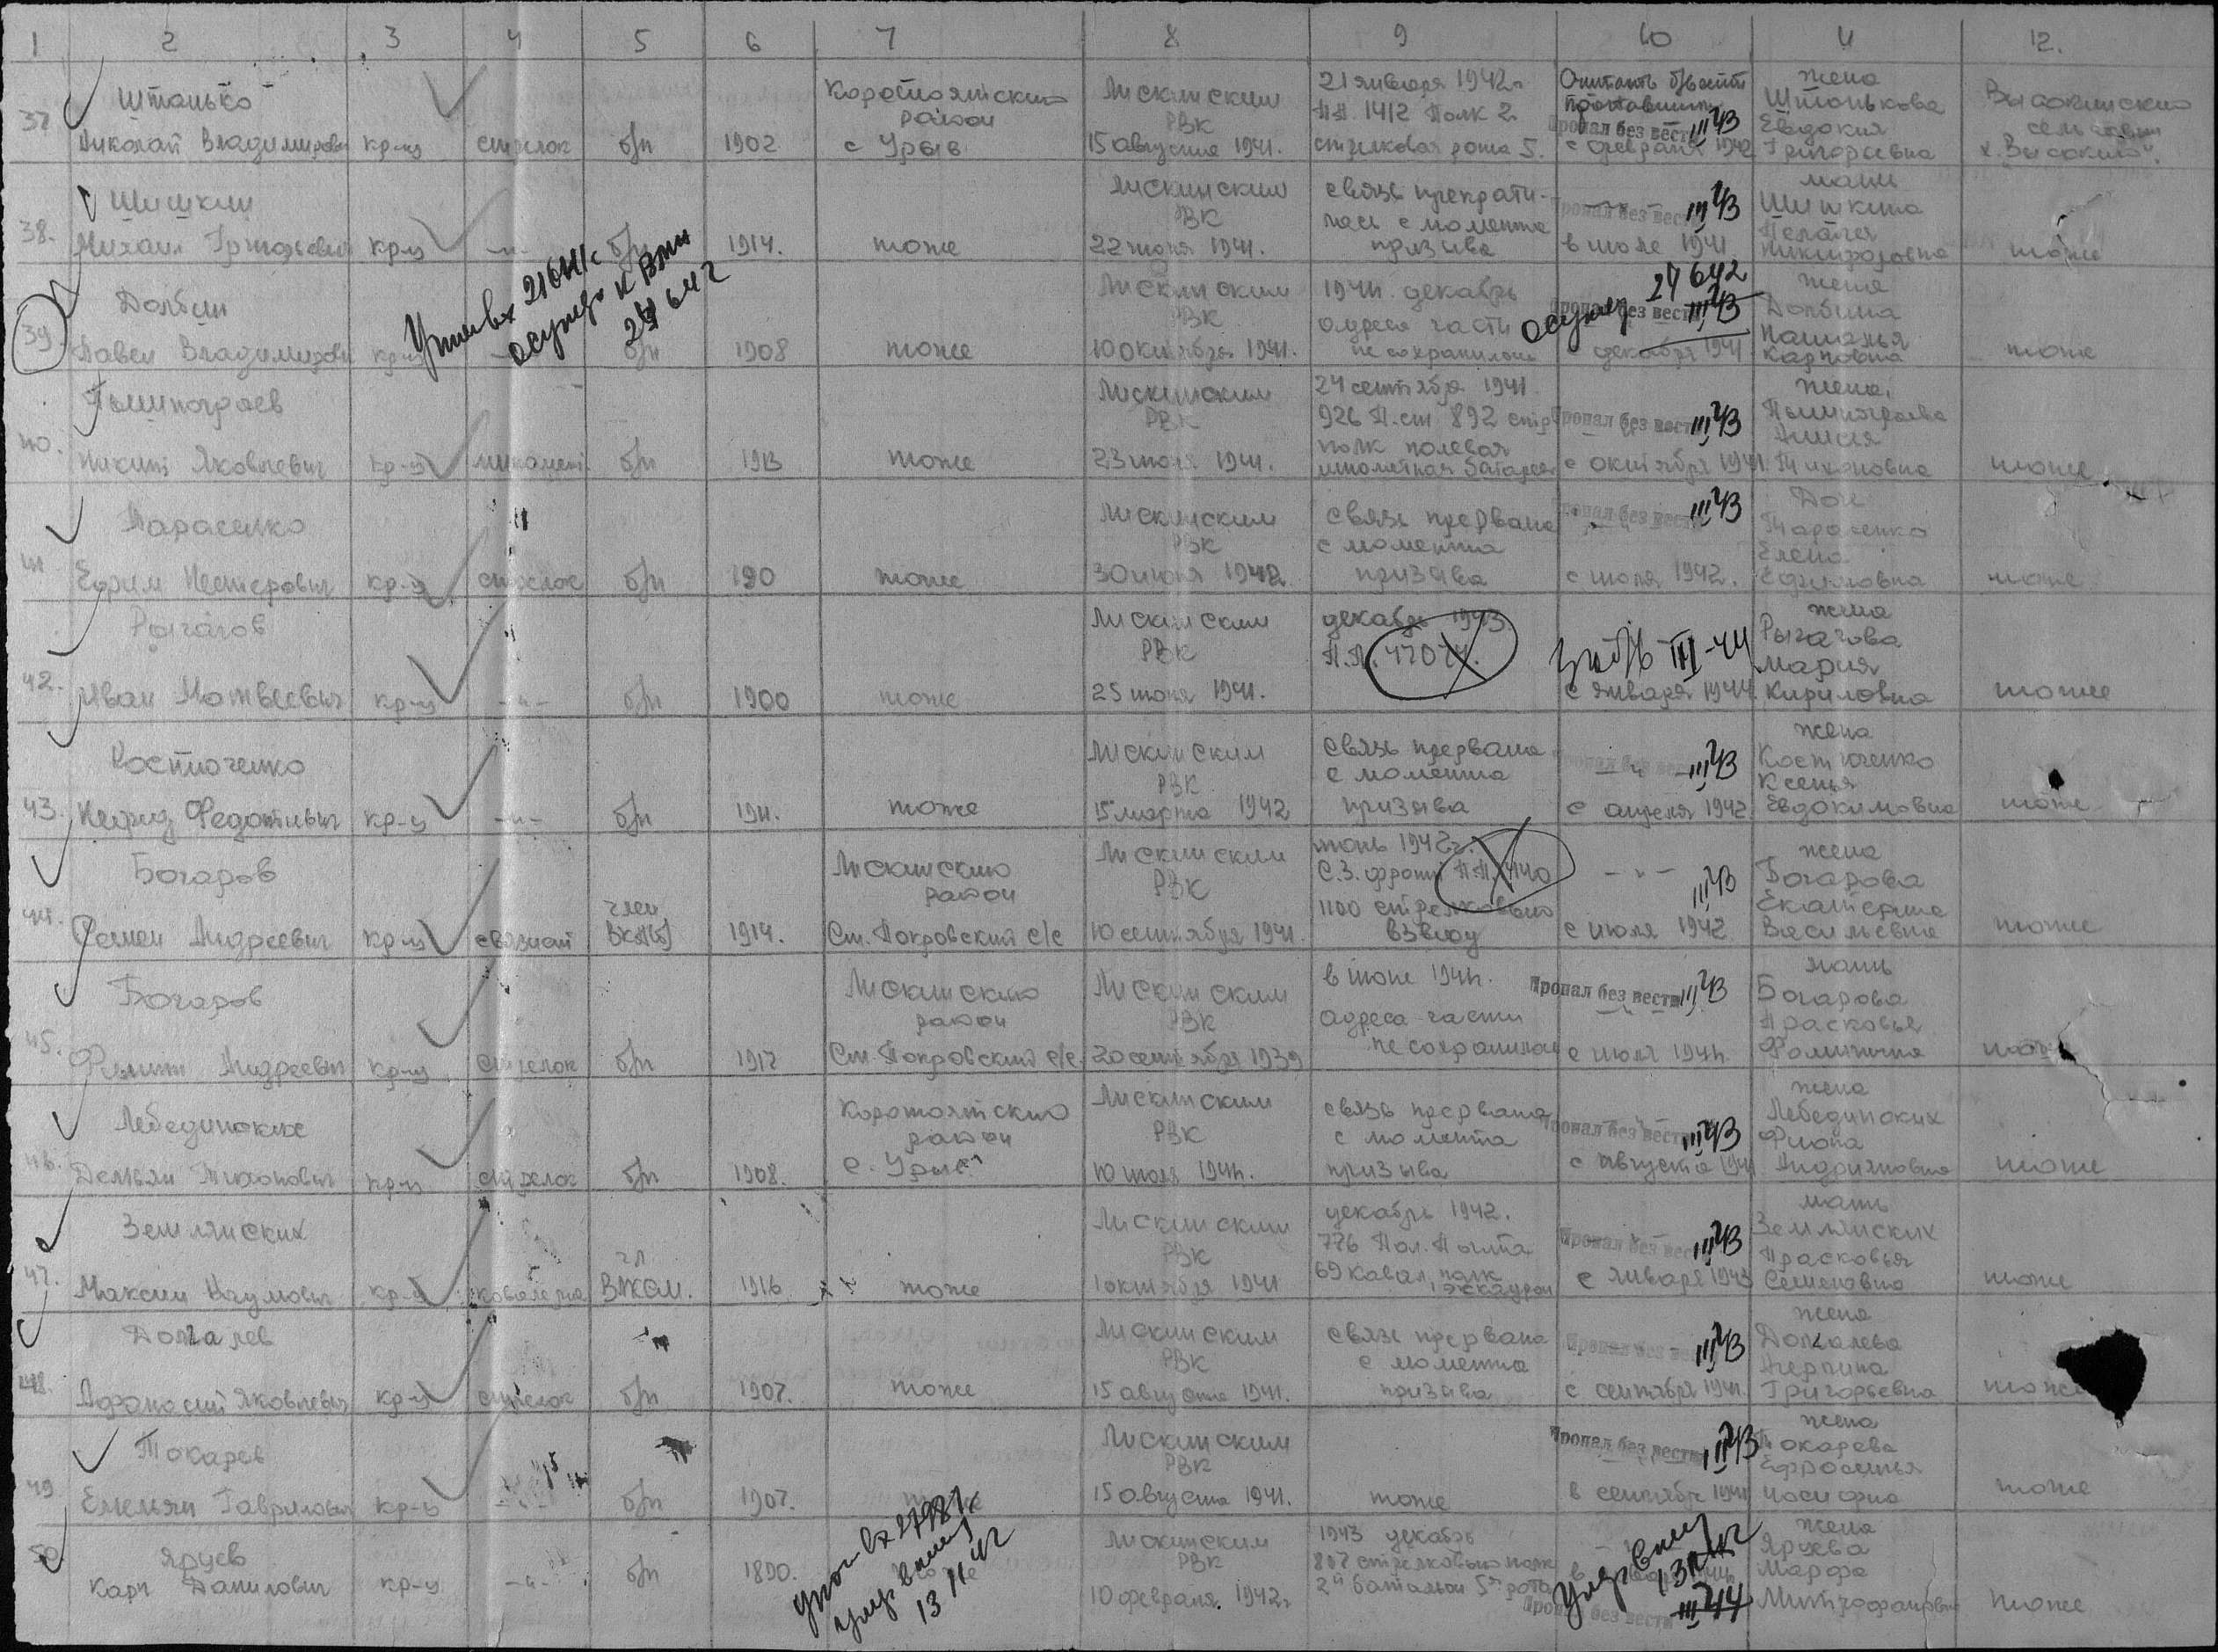 1 2 3 4 5 6 7 8 9 10 11 12.
37 Штанько Николай Владимирови кр-ц стрелок б/п 1902 Коротоякского район с Урыв Лискинским РВК 15 августа 1941. 21 января 1942г П.П. 1412 Полк 2 стрелковая рота 5. Считать б/вести пропавшим Пропал без вест III 43 с февраля 1942 жена Штонькова Евдокия Григорьевна Высокинского сельсовет х. Высокий".
38. Шишкин Михаил Григорьевич кр-ц -"- б/п 1914. тоже Лискинским РВК 22 июня 1941. связь прекрати- лась с момента призыва Пропал без вест III 43 в июле 1941 мать Шишкина Пелагея Никифоровна тоже
39. Долбин Павел Владимирови кр-ц б/п 1908 тоже Лискинским РВК 10 октября 1941. 1941. декабрь адреса части не сохранилось Пропал без вест III 43 осужд 24 6 42 с декабря 1941 жена Долбина Наталья Карповна тоже
осужд. к ВМН
24 6 42
40. Никит Яковлевич кр-ц миномет. б/п 1913 тоже Лискинским РВК 23 июля 1941. 24 сентября 1941. 926 П.ст 892 стр полк полевая минометная батарея Пропал без вест III 43 с октября 1941. жена, Тихоновна тоже
41. Тарасенко Ефрим Нестерович кр-ц стрелок б/п 190 тоже Лискинским РВК 30 июня 1942. связь прервана с момента призыва Пропал без вест III 43 с июля 1942. Доч Тарасенко Елена Ефимовна тоже
42. Рычагов Иван Матвеевич кр-ц -"- б/п 1900 тоже Лискинским РВК 25 июня 1941. декабрь 1943. П.П. 47074. III-44 с января 1944. жена Рычагова Мария Кириловна тоже
43. Костюченко Федотович кр-ц -"- б/п 1911. тоже Лискинским РВК 15 марта 1942 связь прервана с момента призыва -"- III 43 с апреля 1942 жена Костюченко Ксенья Евдокимовна тоже
44. Бочаров Семен Андреевич кр-ц связист член ВКП(б) 1914. Лискинского район Ст. Покровский с/с Лискинским РВК 10 сентября 1941. июнь 1942г. С.З. фронт П.П. 1100 стрелкового взвод -"- III 43 с июля 1942 жена Бочарова Екатерина Васильевна тоже
45. Бочаров Андреевич кр-ц стрелок б/п 1917 Лискинского район Ст. Покровский с/с. Лискинским РВК 20 сентября 1939 в июне 1941. адреса части не сохранилос Пропал без вести III 43 с июля 1941. мать Бочарова Прасковья тоже
46. Лебединских Демьян Тихонович кр-ц стрелок б/п 1908. Коротоякского район с. Урыв Лискинским РВК 10 июля 1941. связь прервана с момента призыва Пропал без вест III 43 с августа 1941 жена Лебединских Фиона Андрияновна тоже
47. Землянских Максим Наумович кр-ц кавалерис чл ВЛКСМ. 1916 тоже Лискинским РВК 1 октября 1941 декабрь 1942. 776 Пол. Почта 69 кавал. полк 1 эскадрон Пропал без вест III 43 с января 1943 мать Землянских Прасковья Семеновна тоже
48. Долгалев Афанасий Яковлевич кр-ц стрелок б/п 1907. тоже Лискинским РВК 15 августа 1941. связь прервана с момента призыва Пропал без вест III 43 с сентября 1941. жена Долгалева Григорьевна тоже
49 Токарев Емельян Гаврилович кр-ц -"- б/п 1907. Лискинским РВК 15 августа 1941. тоже Пропал без вести III 43 в сентябре 1941 жена Токарева Ефросинья тоже
50 Яруев Карп Данилович кр-ц -"- б/п 1890. Лискинским РВК 10 февраля. 1942г 1943 декабрь 807 стрелкового полк 2й батальон 5я рота Пропал без вести III 44 жена Яруева Марфа Митрофановн тоже